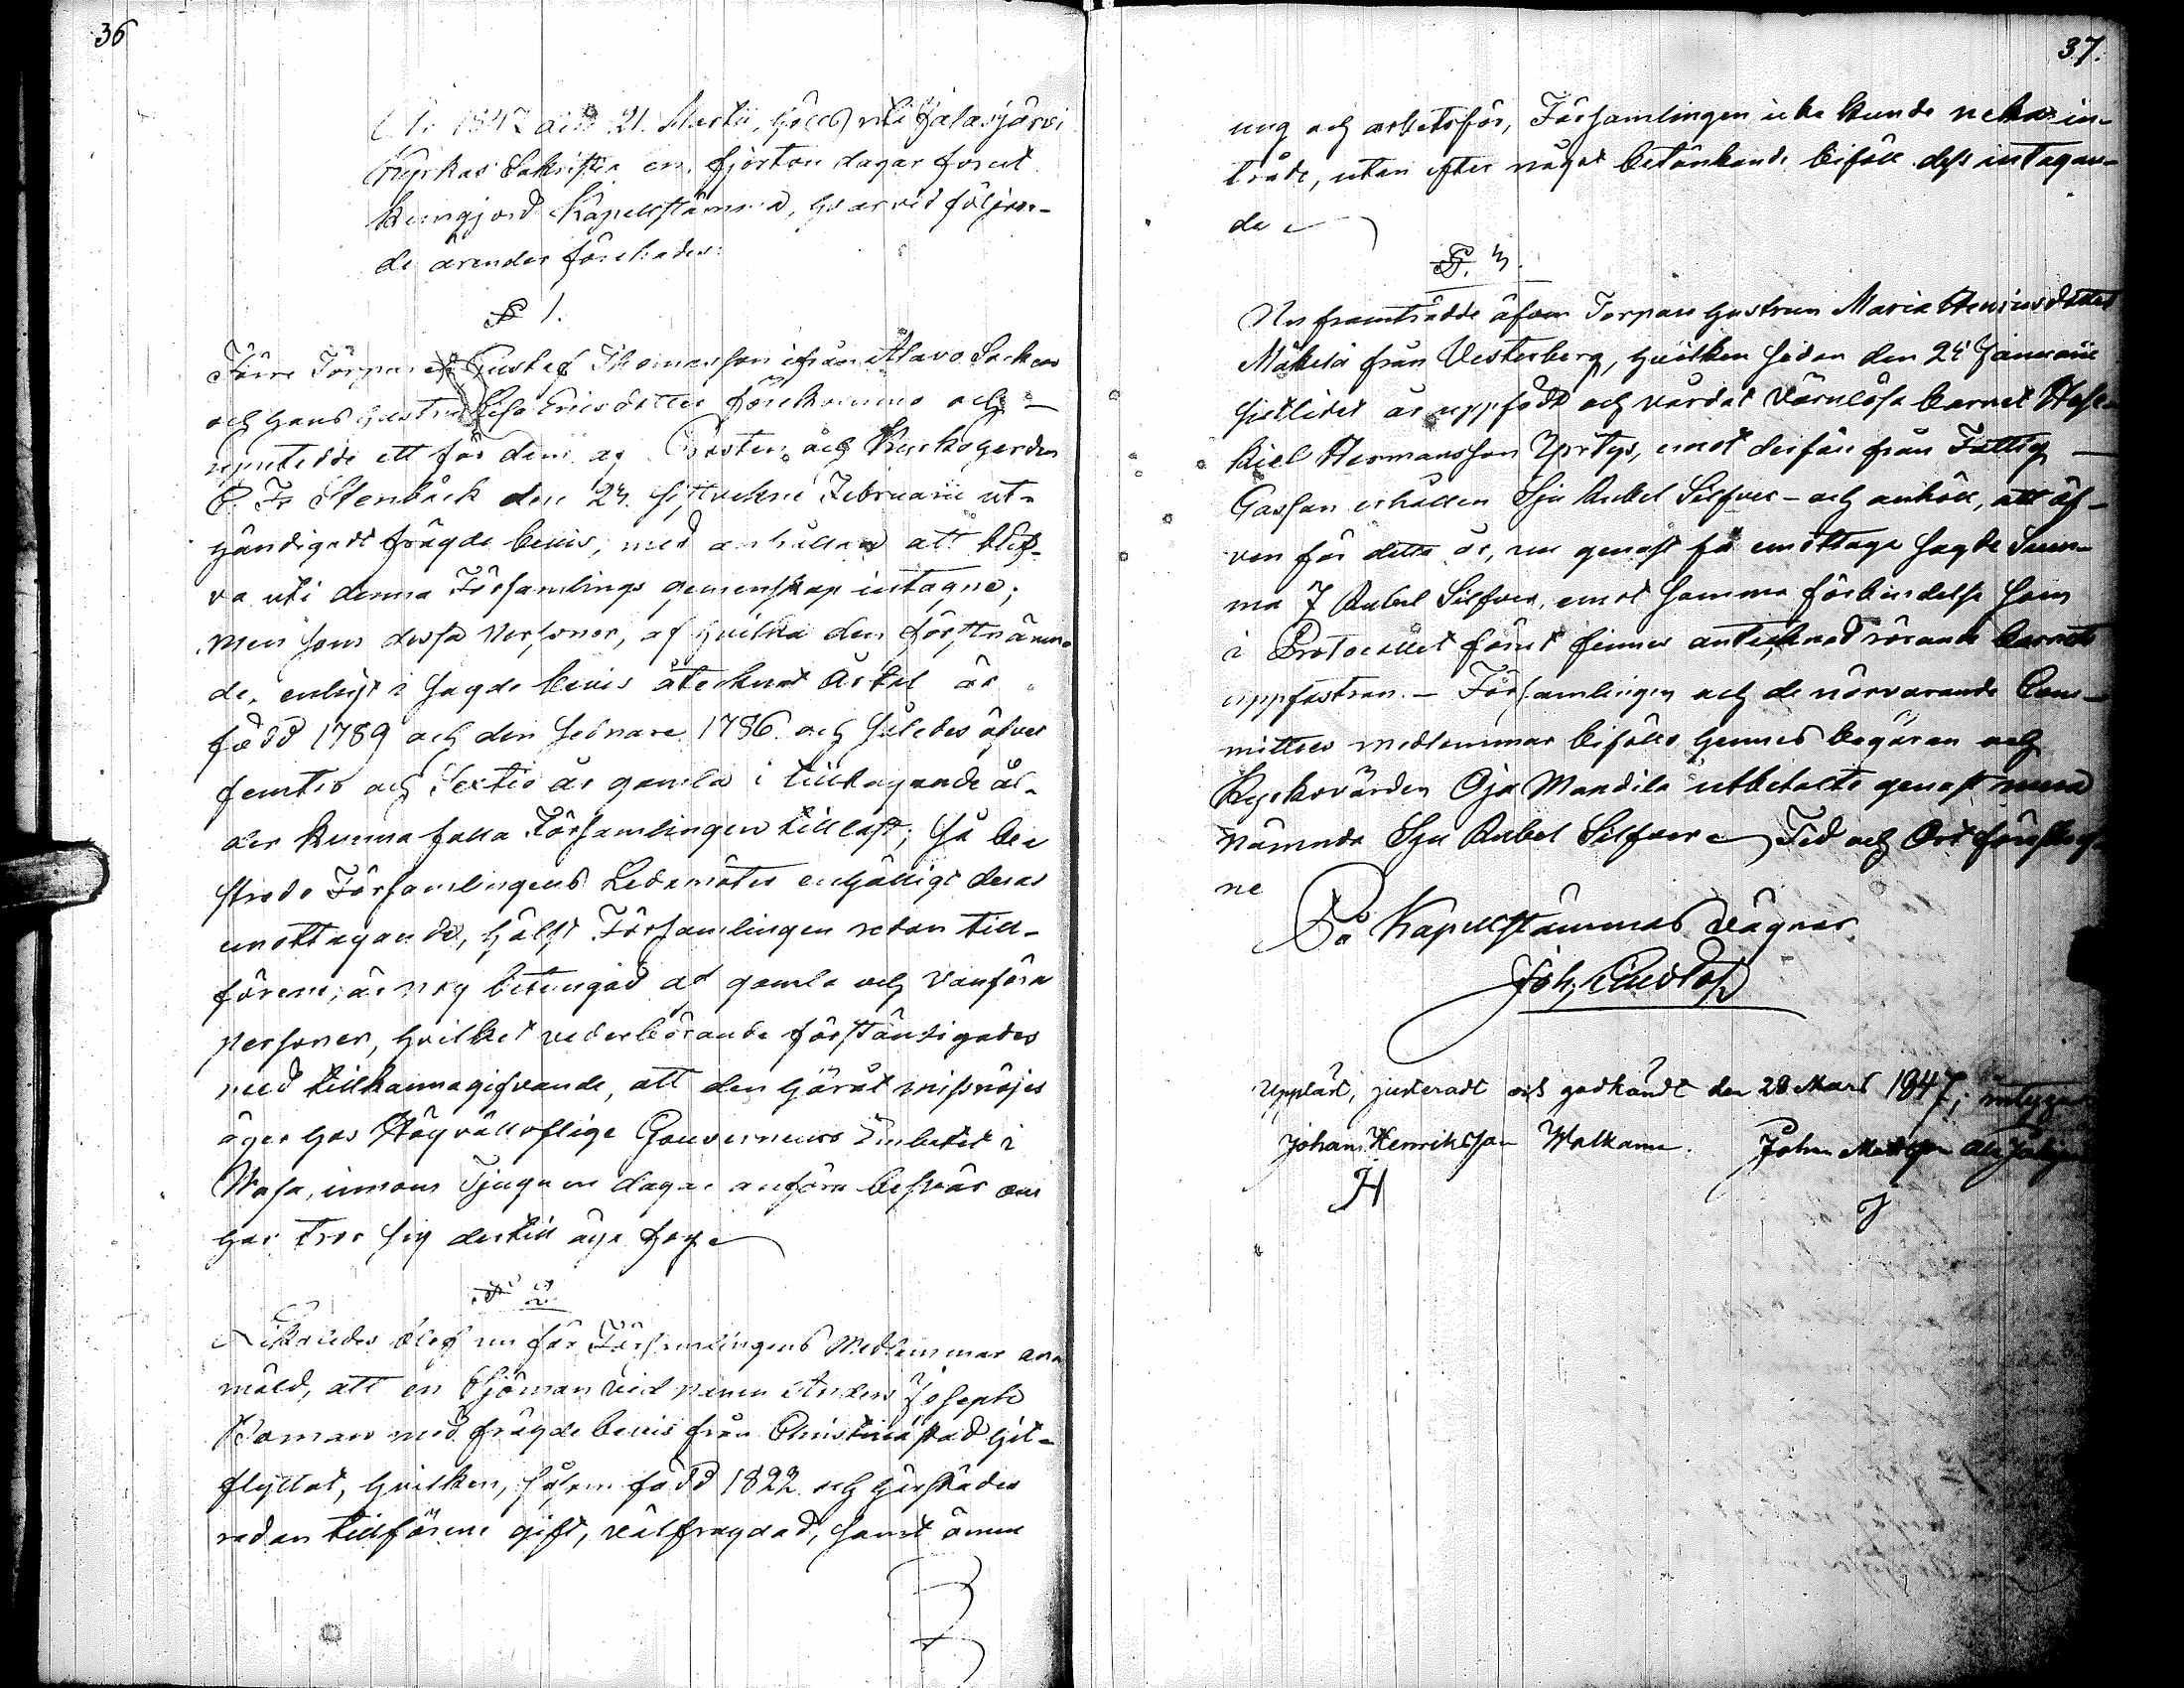 36
År 1847 den 21. Martii, hölls uti Jalasjärvi
Kyrkas Sakristia en, fjorton dagar förut
kungjord Kapellstämma, hvarvid följan-
de ärender förehades:
§ 1.
Förre Torparen Gustaf Thomasson ifrån Alavo Socken
och hans hustru Lisa Ericsdotter förekommo och
uppteddе ett för dem af Prosten och Kyrkoherden
C. Fr. Stenbäck den 23. sistvekne Februarii ut-
händigadt frägde bevis, med anhållan att blif-
va uti denna Församlings gemenskap intagne;
men som dessa Personer, af hvilka den förstnämn-
de, enligt i sagde bevis återknat är
född 1789 och den sednare 1786 och således öfver
femtio och Sextio år gamla i tilltagande ål-
der kunna falla Församlingen till last; så be-
stredo Församlingens Ledamöter enhälligt deras
emottagande, hälst Församlingen redan till-
förene, är nog betungad af gamla och vanföra
personer, hvilket vederbörande förständigades
med tillkännagifvande, att den häråt missnöjes
äger hos Högvälloflige Gouverneurs Embetet i
Wasa, innom Tjugu en dagar anföra besvär om
han tror sig dertill äga fog
§ 2
Likaledes blef nu för Församlingens Medlemmar an-
mäld, att en Sjöman vid namn Anders Joseph
Roman med frägde bevis från Christinæstad hit-
flyttat, hvilken, såsom född 1822 och härstädes
redan tillförene gift, välfrägdad, samt ännu
37.
ung och arbetsför, Församlingen icke kunde neka in-
träde, utan efter något betänkande biföll dess intagan-
de
§. 3.
Nu framträdde äfven Torpare hustrun Maria Henricsdotter
Mäkelä från Vesterberg, hvilken sedan den 24 Januarii
sistlidet år uppfödt och vårdat värnlösa barnet Hese-
kiel Hermansson Yrtys, emot derför från Fattig
Cassan erhållen Sju Rubel Silfver – och anhöll, att äf-
ven för detta år, nu genast få emottaga sagde Sum-
ma 7 Rubel Silfver, emot samma förbindelse som
i Protocollet förut finnes antecknad rörande barnets
uppfostran. – Församlingen och de närvarande Com-
mittees medlemmar biföllo hennes begäran och
Kyrkovärden Oja Mandila utbetalte genast
nämnda Sju Rubel Silfver Tid och Ort föreskref-
ne
På Kapellstämmas vägnar
Joh.
Uppläst, justeradt och godkändt den 28 Mars 1847; intyga
Johan Henriksson Walkama. Johan Mattsson Ala Jalasjär
H J